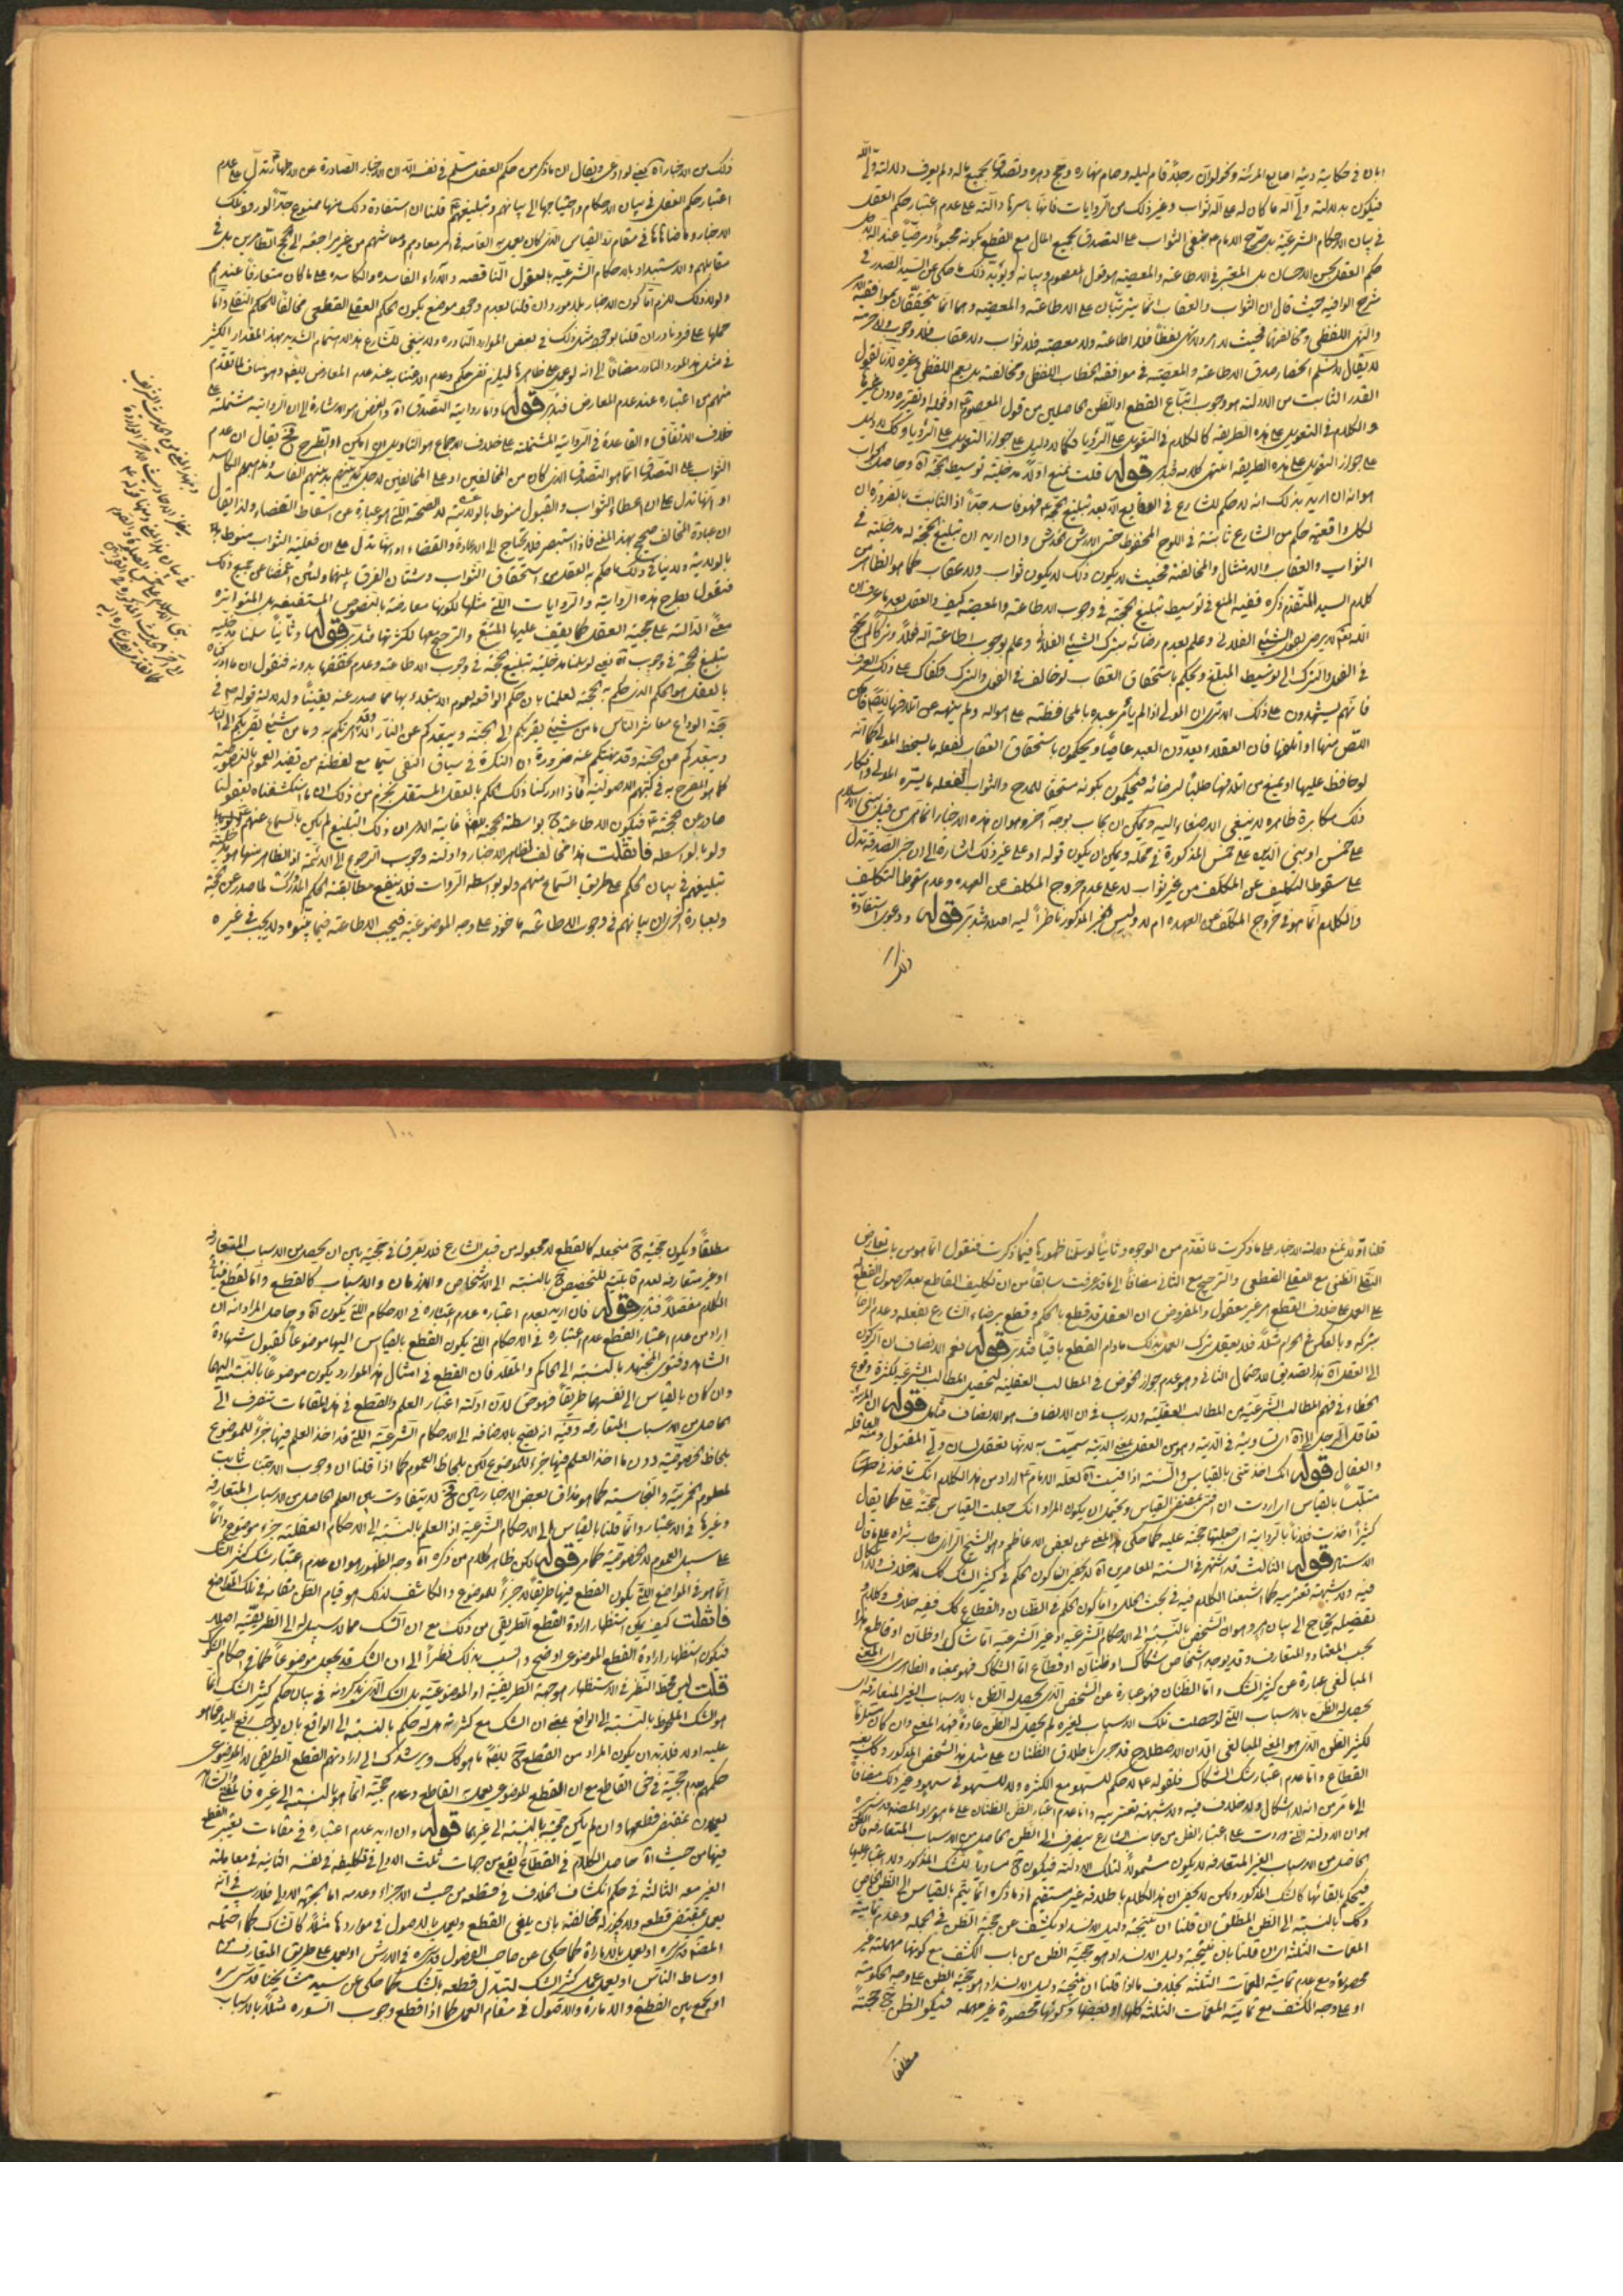 ابان في حكاية دية اصابع المرئة ونحو لو ان رجلاً قام ليله وصام نهاره وحج دهره وتصدق بجميع ماله ولم يعرف ولاية ولي الله
فيكون بدلالته ولي الله ما كان له على الله ثواب وغير ذلك من الروايات فانها باسرها دالة على عدم اعتبار حكم العقل
في بيان الاحكام الشرعية بل صرح الامام ع بنفي الثواب على التصدق بجميع المال مع القطع بكونه محبوباً ومرضياً عند الله بل
حكم العقل بحسن الاحسان بل المعتبر في الاطاعة والمعصية هو قول المعصوم وبيانه ويؤيد ذلك ما حكى عن السيد الصدر في
شرح الوافية حيث قال ان الثواب والعقاب انما يترتبان على الاطاعة والمعصية وهما انما يتحققان بموافقة الامر
والنهي اللفظي ومخالفتها فحيث لا امر ولا نهي لفظاً فلا اطاعة ولا معصية فلا ثواب ولا عقاب فلا وجوب ولا حرمة
لا يقال لا نسلم انحصار صدق الاطاعة والمعصية في موافقة الخطاب اللفظي ومخالفته بل يعم اللفظي وغيره لانا نقول
القدر الثابت من الادلة هو وجوب اتباع القطع او الظن الحاصلين من قول المعصوم ع او فعله او تقريره دون غيرها
والكلام في التعويل على هذه الطريقة كالكلام في التعويل على الرؤيا فكما لا دليل على جواز التعويل على الرؤيا وكك لا دليل
على جواز التعويل على هذه الطريقة انتهى كلامه فتدبر قوله قلت نمنع اولاً مدخلية توسيط الحجة آه وحاصل الجواب
هو انه ان اريد بذلك انه لا حكم للشارع في الوقايع الا بعد تبليغ الحجة ع فهو فاسد جداً اذ الثابت بالضرورة ان
لكل واقعة حكم من الشارع ثابتة في اللوح المحفوظ حتى الارش للخدش وان اريد ان تبليغ الحجة له مدخلية في
الثواب والعقاب والامتثال والمخالفة فحيث لا يكون ذلك لا يكون ثواب ولا عقاب كما هو الظاهر من
كلام السيد المتقدم ذكره ففيه المنع في توسيط تبليغ الحجة في وجوب الاطاعة والمعصية كيف والعقل بعد ما عرف ان
الله تعالى لا يرضى بفعل الشيء الفلاني وعلم بعدم رضائه بترك الشيء الفلاني وعلم بوجوب اطاعة الله فعلاً وتركاً لم يحتج
في الفعل والترك الى توسيط المبلغ ويحكم باستحقاق العقاب لو خالف في الفعل والترك فكفاك على ذلك العرف
فانهم يشهدون على ذلك الا ترى ان المولى اذا لم يأمر عبده بالمحافظة على امواله ولم ينهه عن اتلافها
اللص منها او اتلفها فان العقلاء يعدون العبد عاصياً ويحكمون باستحقاق العقاب لفعله ما يسخط المولى كما انه
لو حافظ عليها او يمنع من اتلافها طلباً لرضائه فيحكمون بكونه مستحقاً للمدح والثواب لفعله ما يسره المولى وانكار
ذلك مكابرة ظاهرة لا ينبغي الاصغاء اليه ويمكن ان يجاب بوجه آخر وهو ان هذه الاخبار انما هي من قبيل بني الاسلام
على خمس او بني الدين على خمس المذكورة في محله ويمكن ان يكون قوله او على غير ذلك اشارة الى ان خبر الصدقة تدل
على سقوط التكليف عن المكلف من غير ثواب لا على عدم خروج المكلف عن العهدة وعدم سقوط التكليف
والكلام انما هو في خروج المكلف عن العهدة ام لا وليس الخبر المذكور ناظراً اليه اصلاً فتدبر قوله ودعوى استفادة
ذلك
ذلك من الاخبار آه يعني لو ادعى ويقال ان ما ذكر من حكم العقل مسلم في نفسه الا ان الاخبار الصادرة عن الاطهار تدل على عدم
اعتبار حكم العقل في بيان الاحكام واحتياجها الى بيانهم وتبليغهم ع قلنا ان استفادة ذلك منها ممنوع جداً لورود تلك
الاخبار وما ضاهاها في مقام رد القياس الذي كان يعمل به العامة في امر معادهم ومعاشهم من غير مراجعة الى الحجج الطاهرين بل في
مقابلهم والاستبداد بالاحكام الشرعية بالعقول الناقصة والآراء الفاسدة والكاسدة على ما كان متعارفاً عندهم
ولولا ذلك للزم اما كون الاخبار بلا مورد ان قلنا بعدم وجود موضع يكون الحكم العقلي القطعي مخالفاً للحكم النقلي واما
حملها على فرد نادر ان قلنا بوجود مثل ذلك في بعض الموارد النادرة ولا ينبغي للشارع هذا الاهتمام الشديد بهذا المقدار الكثير
في مثل هذا المورد النادر مضافاً الى انه لو عمل على ظاهرها ليلزم نفي حكم وعدم الاعتناء به عند عدم المعارض ايضاً وهو مناف لما تقدم
منهم من اعتباره عند عدم المعارض فتدبر قوله واما رواية التصدق آه والغرض هو الاشارة الى ان الرواية مشتملة على
خلاف الاتفاق والقاعدة في الرواية المشتملة على خلاف الاجماع هو التأويل ان امكن او الطرح فح يقال ان عدم
الثواب على التصدق انما هو التصدق الذي كان من المخالفين او على المخالفين لاجل تدينهم بدينهم الفاسد ومذهبهم الكاسد
او انها تدل على ان اعطاء الثواب والقبول منوط بالولاية لا الصحة التي هو عبارة عن اسقاط القضاء ولذا يقال
ان عبادة المخالف صحيح بهذا المعنى فاذا استبصر فلا يحتاج الى الاعادة والقضاء او انها تدل على ان فعلية الثواب منوط
بالولاية ولا ينافي ذلك ما حكم به العقل من استحقاق الثواب وشتان الفرق بينهما ولئن اغمضنا عن جميع ذلك
فنقول بطرح هذه الرواية والروايات التي مثلها لكونها معارضة بالنصوص المستفيضة بل المتواترة
معنى الدالة على حجية العقل كما يقف عليها المتتبع والترجيح معها لكثرتها فتدبر قوله وثانياً سلمنا مدخلية
تبليغ الحجة في وجوب آه يعني لو سلمنا مدخلية تبليغ الحجة في وجوب الاطاعة وعدم تحققها بدونه فنقول ان ما ادركناه
بالعقل هو الحكم الذي حكم به الحجة لعلمنا بان حكم الواقعة لعموم الابتلاء بها مما صدر عنه يقيناً ولا دلالة قوله ص في
حجة الوداع معاشر الناس ما من شيء يقربكم الى الجنة ويبعدكم عن النار الا وقد امرتكم به وما من شيء يقربكم الى النار
ويبعدكم من الجنة وقد نهيتكم عنه ضرورة ان النكرة في سياق النفي سيما مع لفظة من تفيد العموم بالنصوصية
كما هو المصرح به في كتبهم الاصولية فاذا ادركنا ذلك الحكم بالعقل المستقل نجزم من ذلك ان ما استكشفناه بعقولنا
صادر عن الحجة ع فيكون الاطاعة ح بواسطة الحجة ايضاً غاية الامر ان ذلك التبليغ لم يكن بالسماع عنهم
ولو بالواسطة فان قلت هذا مخالف لظاهر الاخبار وادلة وجوب الرجوع الى الائمة اذ الظاهر منها هو مدخلية
تبليغهم في بيان الحكم على طريق السماع منهم ولو بواسطة الروات فلا ينفع مطابقة الحكم المدرك لما صدر عن الحجة
وبعبارة اخرى ان بيانهم في وجوب الاطاعة مأخوذ على وجه الموضوعية فيجب الاطاعة فيما بينوه ولا يجب في غيره
١٠٠
قلنا اولاً نمنع دلالة الاخبار على ما ذكرت لما تقدم من الوجوه وثانياً لو سلمنا ظهورها فيما ذكرت فنقول انما هو من باب تعارض
النقل الظني مع العقل القطعي والترجيح مع الثاني مضافاً الى ما قد عرفت سابقاً من ان تكليف القاطع بعد حصول القطع
على العمل على خلاف القطع امر غير معقول والمفروض ان العقل قد قطع بالحكم وقطع برضاء الشارع بفعله وعدم الرضا
بتركه وبالعكس في الحرام مثلاً فلا يعقل ترك العمل بذلك مادام القطع باقياً فتدبر قوله نعم الانصاف ان الركون
الى العقل آه هذا تصديق للاحتمال الثاني وهو عدم جواز الخوض في المطالب العقلية لتحصيل المطالب الشرعية لكثرة وقوع
الخطاء في فهم المطالب الشرعية من المطالب العقلية ولا ريب في ان الانصاف هو الانصاف فتأمل قوله ان المرئة
تعاقل الرجل الى آه اي تساويه في الدية وهو من العقل بمعنى الدية سميت به لانها تعقل لسان ولي المقتول ومنه العاقلة
والعقال قوله انك اخذتني بالقياس والسنة اذا قيست آه لعله الامام ع اراد من هذا الكلام انك تأخذ في
متلبساً بالقياس اي اردت ان افتي بمقتضى القياس ويحتمل ان يكون المراد انك جعلت القياس حجة علي كما يقال
كثيراً اخذت فلاناً بالرواية اي جعلتها حجة عليه كما حكى هذا المعنى عن بعض الاعاظم وهو الشيخ الرازي طاب ثراه على ما قال
الاستاد قوله الثالث قد اشتهر في السنة المعاصرين آه لا يخفى انما كون الحكم في كثير الشك كك لا خلاف ولا اشكال
فيه ولا شبهة تعتريه كما اشبعنا الكلام فيه في بحث الخلل واما كون الحكم في الظنان والقطاع كك ففيه خلاف وكلام و
تفصيله يحتاج الى بيان امر وهو ان الشخص بالنسبة الى الاحكام الشرعية او غير الشرعية اما شاك او ظان او قاطع هذا
بحسب المعتاد والمتعارف وقد يوجد اشخاص شكاك او ظنان او قطاع اما الشكاك فهو بمعناه الظاهر اي المعنى
المبالغي عبارة عن كثير الشك واما الظنان فهو عبارة عن الشخص الذي يحصل له الظن بالاسباب الغير المتعارفة اي
يحصل له الظن بالاسباب التي لو حصلت تلك الاسباب لغيره لم يحصل له الظن عادة فهذا المعنى وان كان مستلزماً
لكثير الظن الذي هو المعنى المبالغي الا ان الاصطلاح قد جرى باطلاق الظنان على مثل هذا الشخص المذكور وكك بعينه
القطاع واما عدم اعتبار شك الشكاك فلقوله ع لا حكم للسهو مع الكثرة ولا للسهو في سهو وغير ذلك مضافاً
الى ما مر من انه لا اشكال ولا خلاف فيه ولا شبهة تعتريه واما عدم اعتبار الظن الظنان على ما هو مراد المصنف قدس سره
هو ان الادلة التي وردت على اعتبار الظن من جانب الشارع ينصرف الى الظن الحاصل من الاسباب المتعارفة فالظن
الحاصل من الاسباب الغير المتعارفة لا يكون مشمولاً لتلك الادلة فيكون ح مساوياً للشك المذكور ولا اعتبار عليها
فيحكم بالغائها كالشك المذكور ولكن لا يخفى ان هذا الكلام باطلاقه غير مستقيم اذ ما ذكره انما يتم بالقياس الى الظن الخاص
وكك بالنسبة الى الظن المطلق ان قلنا ان نتيجة دليل الانسداد يكشف عن حجية الظن في الجملة وعدم تمامية
المعممات الثلثة اي ان قلنا بان نتيجة دليل الانسداد هو حجية الظن من باب الكشف مع كونها مهملة غير
محصورة ومع عدم تمامية المعممات الثلثة بخلاف ما لو قلنا ان نتيجة دليل الانسداد هو حجية الظن على وجه الحكومة
او على وجه الكشف مع تمامية المعممات الثلثة كلها او بعضها وكونها محصورة غير مهملة فيكون الظن ح حجة
مطلقا
مطلقاً ويكون حجيته ح منجعلة كالقطع لا مجعولة من قبل الشارع فلا يفرق في حجيته بين ان يحصل من الاسباب المتعارفة
او غير متعارفة لعدم قابلية للتخصيص ح بالنسبة الى الاشخاص والازمان والاسباب كالقطع واما القطع
الكلام مفصلاً فتدبر قوله فان اريد بعدم اعتباره عدم اعتباره في الاحكام التي يكون آه وحاصل المراد انه ان
اراد من عدم اعتبار القطع عدم اعتباره في الاحكام التي يكون القطع بالقياس اليها موضوعاً كقبول شهادة
الشاهد وفتوى المجتهد بالنسبة الى الحاكم والمقلد فان القطع في امثال هذه الموارد يكون موضوعاً بالنسبة اليهما
وان كان بالقياس الى نفسهما طريقاً فهو حق لان ادلة اعتبار العلم والقطع في هذه المقامات تنصرف الى
الحاصل من الاسباب المتعارفة وفيه انه يصح بالاضافة الى الاحكام الشرعية التي قد اخذ العلم فيها جزء للموضوع
بلحاظ الخصوصية دون ما اخذ العلم فيها جزء للموضوع لكن بلحاظ العموم كما اذا قلنا ان وجوب الاجتناب ثابت
لمعلوم الخمرية والنجاسة كما هو مذاق بعض الاخباريين فح لا يتفاوت بين العلم الحاصل من الاسباب المتعارفة
وغيرها في الاعتبار وانما قلنا بالقياس الى الاحكام الشرعية اذ العلم بالنسبة الى الاحكام العقلية جزء موضوع دائماً
على سبيل العموم لا الخصوصية كما مر قوله لكن ظاهر كلام من ذكره آه وجه الظهور هو ان عدم اعتبار شك كثير الشك
انما هو في المواضع التي يكون القطع فيها طريقاً لا جزء للموضوع والكاشف لذلك هو قيام الظن مقامه في تلك المواضع
فان قلت كيف يمكن استظهار ارادة القطع الطريقي من ذلك مع ان الشك مما لا سبيل له الى الطريقية اصلاً
فيكون استظهار ارادة القطع الموضوعي اوضح وانسب بذلك نظراً الى ان الشك قد يجعل موضوعاً كما في احكام الشكوك
قلت ليس محط النظر في الاستظهار هو جهة الطريقية او الموضوعية بل الشك الذي يذكرونه في بيان حكم كثير الشك انما
هو الشك الملحوظ بالنسبة الى الواقع بمعنى ان الشك مع كثرته هل له حكم بالنسبة الى الواقع بان يوجب رفع اليد عما هو
عليه او لا فلا بد ان يكون المراد من القطع ح ايضاً ما هو كك ويرشدك الى ارادتهم القطع الطريقي لا الموضوعي
حكمهم بعدم حجيته في حق القاطع مع ان القطع الموضوعي يعمل به القاطع وعدم حجيته انما هو بالنسبة الى غيره فالمفتي والشاهد
يعملان بمقتضى قطعهما وان لم يكن حجية بالنسبة الى غيرهما قوله وان اريد عدم اعتباره في مقامات يعتبر القطع
فيها من حيث آه حاصل الكلام في القطاع يقع من جهات ثلث الاولى في تكليفه في نفسه الثانية في معاملة
الغير معه الثالثة في حكم انكشاف الخلاف في قطعه من حيث الاجزاء وعدمه اما الجهة الاولى فلا ريب في انه
يعمل بمقتضى قطعه ولا يجوز له مخالفته بان يلغى القطع ويعمل بالاصول في مواردها مثلاً كالشاك كما احتمله
المصنف قدس سره او يعمل بالامارة كما حكى عن صاحب الفصول قدس سره في الدرس او يعمل على طريق المتعارف من
اوساط الناس او يعمل عمل كثير الشك لتبدل قطعه بالشك كما حكى عن سيد مشايخنا قدس سره
او يجمع بين القطع والامارة والاصول في مقام العمل كما اذا قطع وجوب السورة مثلاً بالاسباب